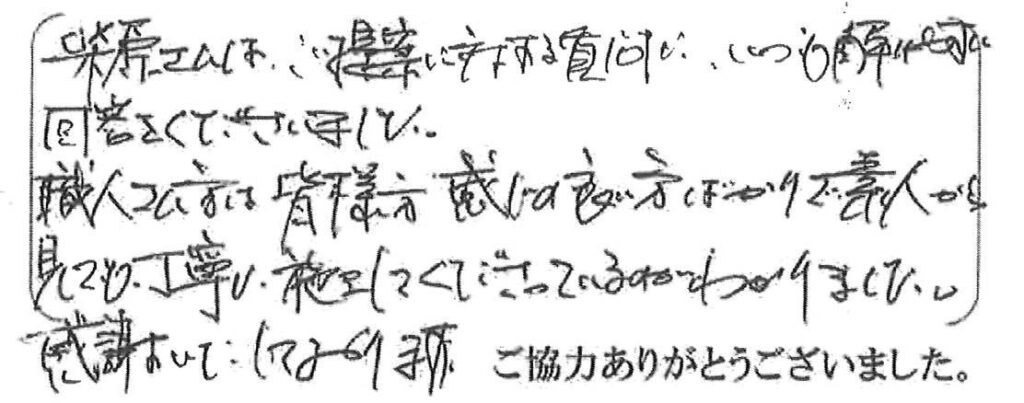 さんは、ご提案に対する質問に、いつも
回答をくださいました。
職人さん方は皆様方感じの良い方ばかりで素人から
見ても、丁寧に、施工してくださっているのがわかりました。
感謝いたしております。ご協力ありがとうございました。